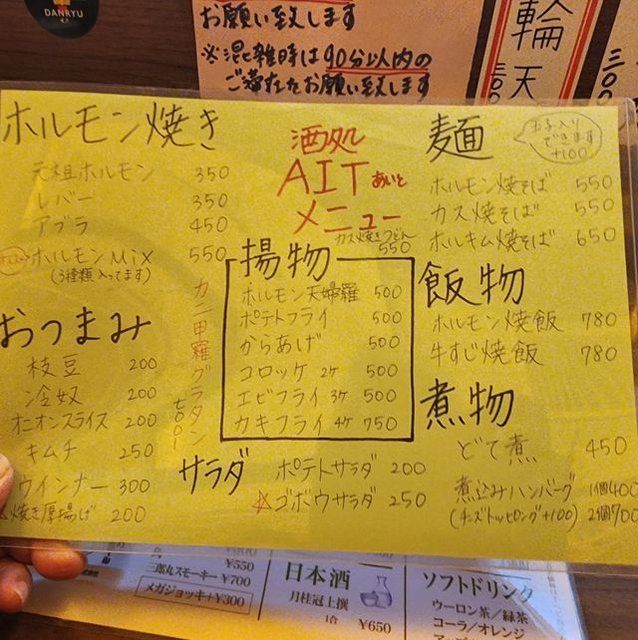 DANRYU
お願い致します
※混雑時は90分以内の
ご滞在をお願い致します
輪天
ホルモン焼き
元祖ホルモン 350
レバー 350
アブラ 450
ホルモンMix 550
(3種類入ってます)
おつまみ
枝豆 200
冷奴 200
オニオンスライス 200
キムチ 250
ウインナー 300
焼き厚揚げ 200
酒処
AIT あいと
メニュー
カス焼きうどん
550
揚物
ホルモン天婦羅 500
ポテトフライ 500
からあげ 500
コロッケ 2ケ 500
エビフライ 3ケ 500
カキフライ 4ケ 750
カニ甲羅グラタン
500
サラダ
ポテトサラダ 200
☆ゴボウサラダ 250
麺
玉子入り
できます
+100
ホルモン焼そば 550
カス焼そば 550
ホルキム焼そば 650
飯物
ホルモン焼飯 780
牛すじ焼飯 780
煮物
どて煮 450
煮込みハンバーグ 1個400
(チーズトッピング+100) 2個700
¥550
三郎丸スモーキー ¥700
メガジョッキ+¥300
日本酒
月桂冠上撰
1合 ¥650
ソフトドリンク
ウーロン茶／緑茶
コーラ／オレンジ